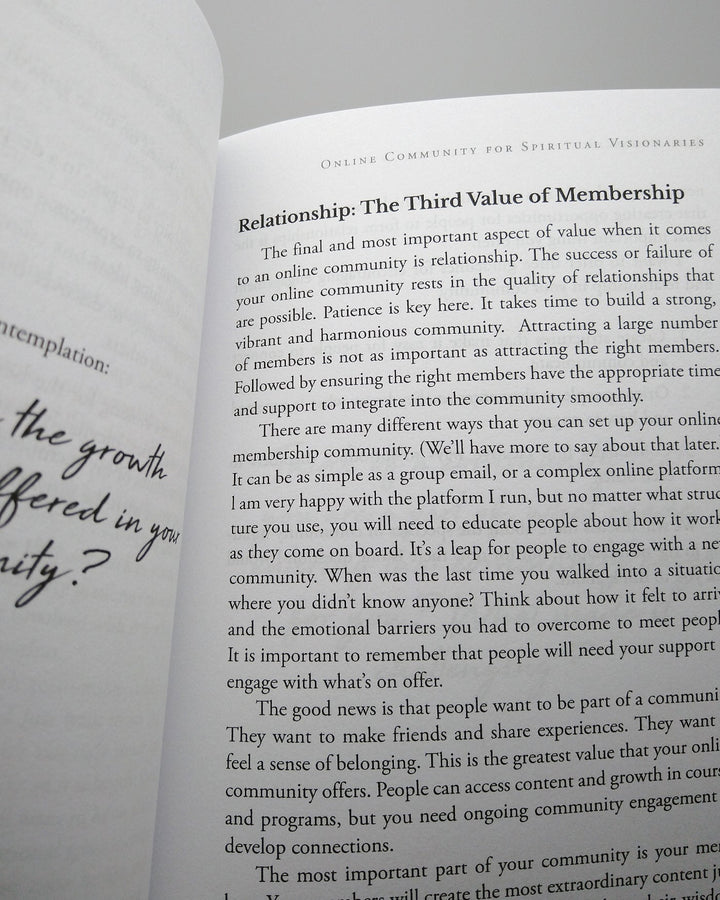 ntemplation:
the growth
ffered in your
nity?
ONLINE COMMUNITY FOR SPIRITUAL VISIONARIES
Relationship: The Third Value of Membership
The final and most important aspect of value when it comes
to an online community is relationship. The success or failure of
your online community rests in the quality of relationships that
are possible. Patience is key here. It takes time to build a strong,
vibrant and harmonious community. Attracting a large number
of members is not as important as attracting the right members.
Followed by ensuring the right members have the appropriate time
and support to integrate into the community smoothly.
There are many different ways that you can set up your online
membership community. (We'll have more to say about that later.
It can be as simple as a group email, or a complex online platform
I am very happy with the platform I run, but no matter what struc
ture you use, you will need to educate people about how it work
as they come on board. It's a leap for people to engage with a ne
community. When was the last time you walked into a situatio
where you didn't know anyone? Think about how it felt to arri
and the emotional barriers you had to overcome to meet peopl
It is important to remember that people will need your support
engage with what's on offer.
The good news is that people want to be part of a communi
They want to make friends and share experiences. They want
feel a sense of belonging. This is the greatest value that your onli
community offers. People can access content and growth in cours
and programs, but you need ongoing community engagement
develop connections.
The most important part of your community is your me
will create the most extraordinary content j